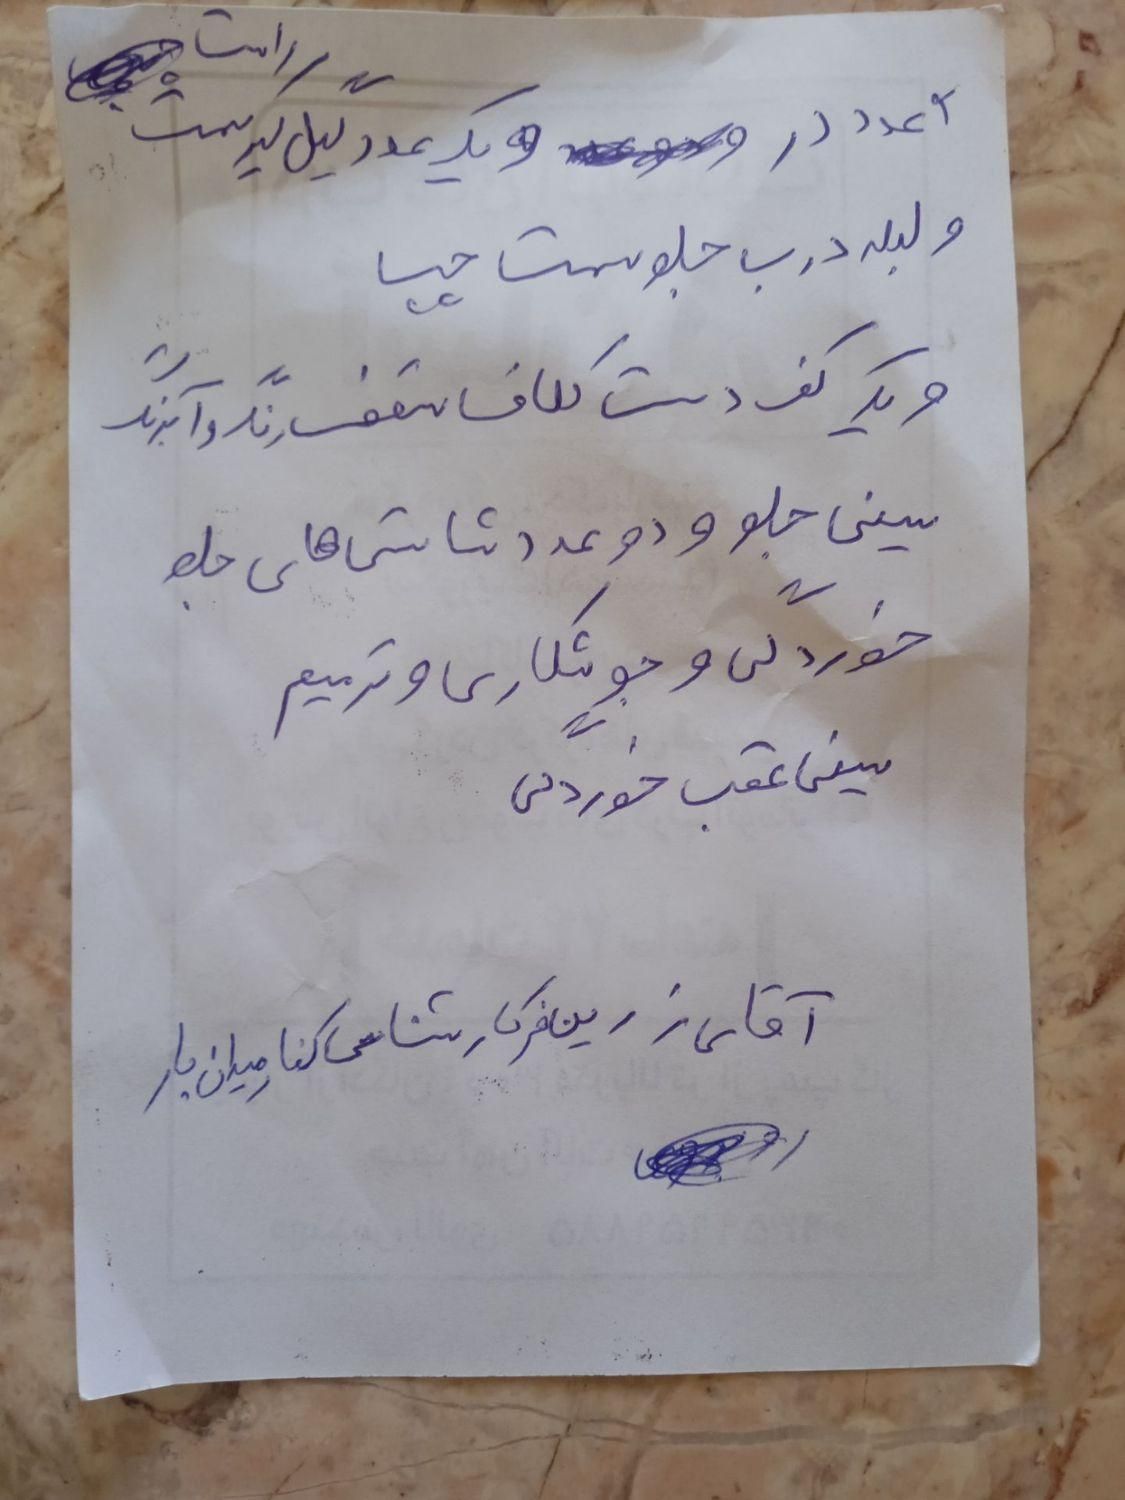 راست
۲ عدد در و و یک عدد گیل گیر سمت
و لبه درب جلو سمت چپ
و یک کف دست کلاف سقف رنگ و آبرنگ
سینی جلو و دو عدد شاسی های جلو
خوردگی و جوشکاری و ترمیم
سینی عقب خوردگی
آقای زرین فر کارشناسی کنار میدان بار